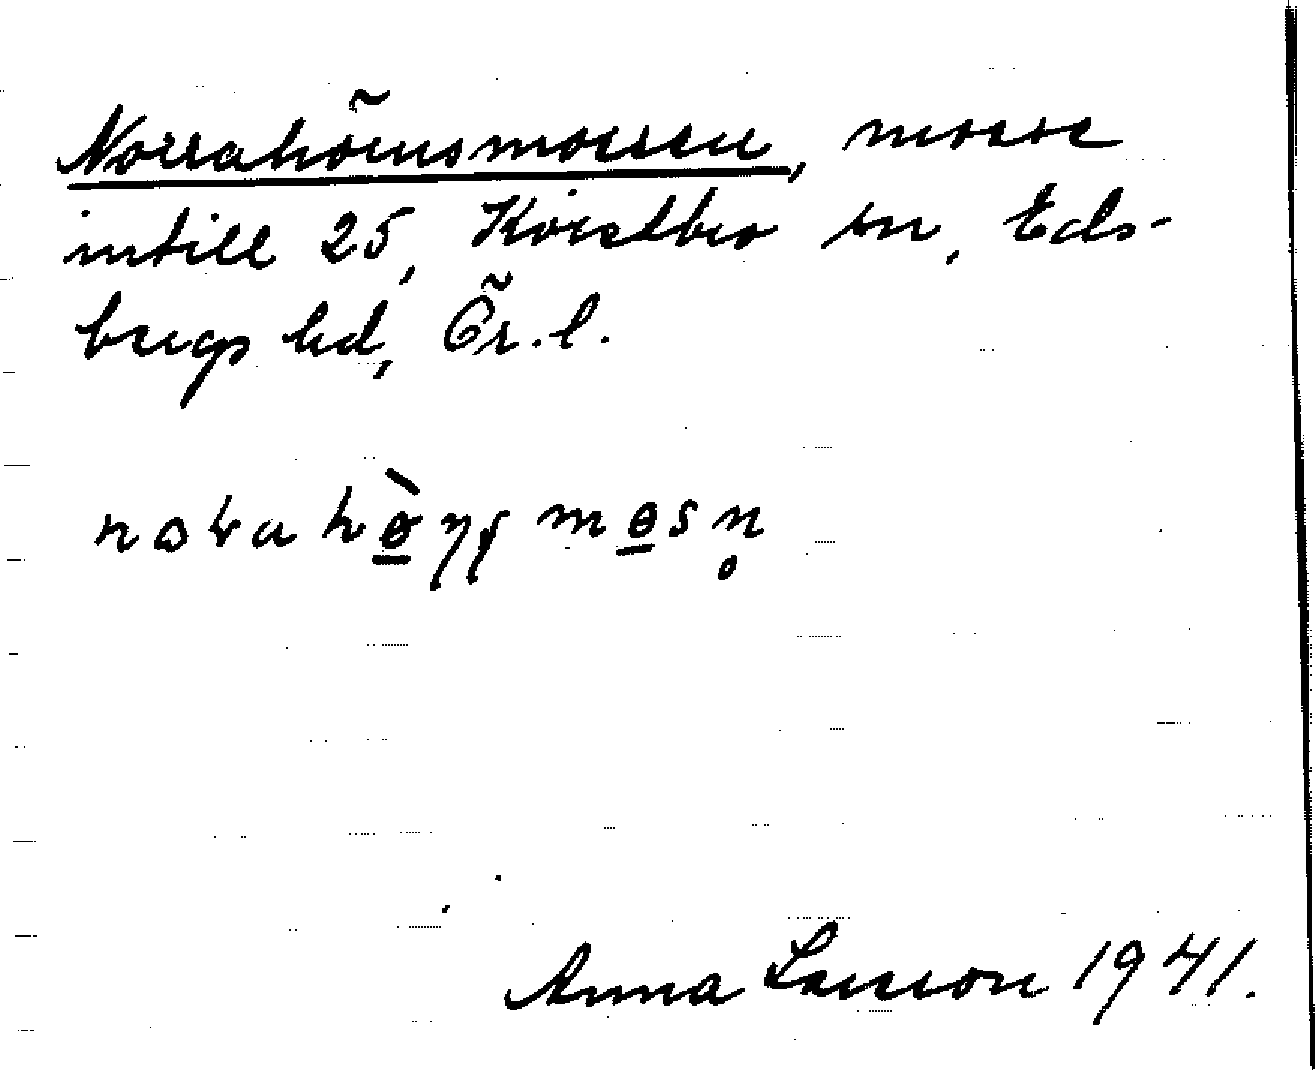 Norrahörnsmossen, mosse
intill 25, Kvistbro sn, Eds-
bergs hd, Ör. l.
Anna Larsson 1941.